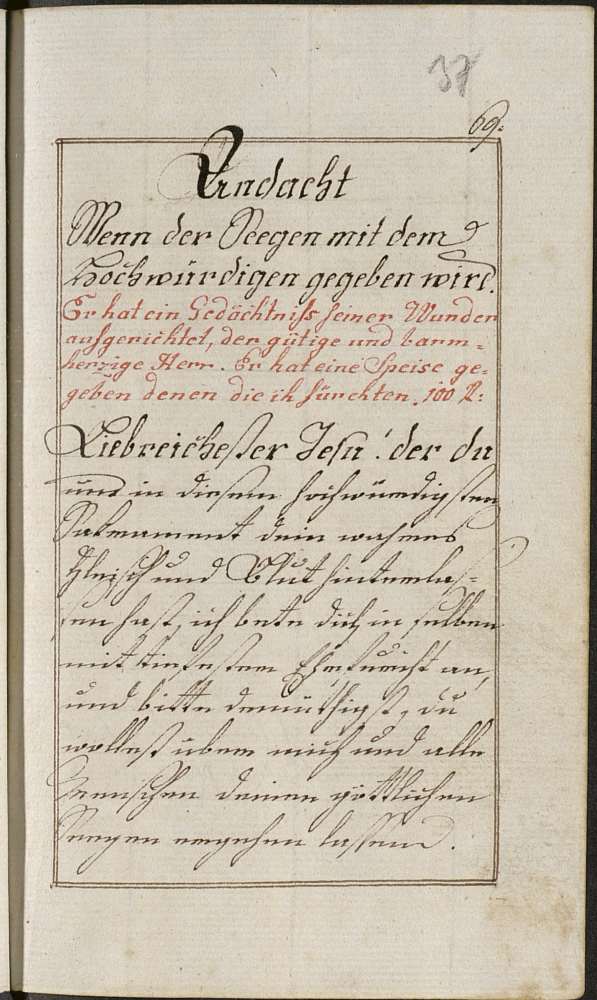 37
69.
Andacht
Wenn der Seegen mit dem
Hochwürdigen gegeben wird.
Er hat ein Gedächtniß seiner Wunder
aufgerichtet, der gütige und barm=
herzige Herr. Er hat eine Speise ge=
geben denen die ih fürchten. 100 P:
Liebreichester Jesu! der du
uns in diesem hochwürdigsten
Sakrament dein wahres
Fleisch und Blut hinterlas=
sen hast, ich bete dich in selben
mit tiefester Ehrfurcht an,
und bitte demüthigst, du
wollest übern mich und alle
Menschen deinen göttlichen
Seegen ergehen lassen.